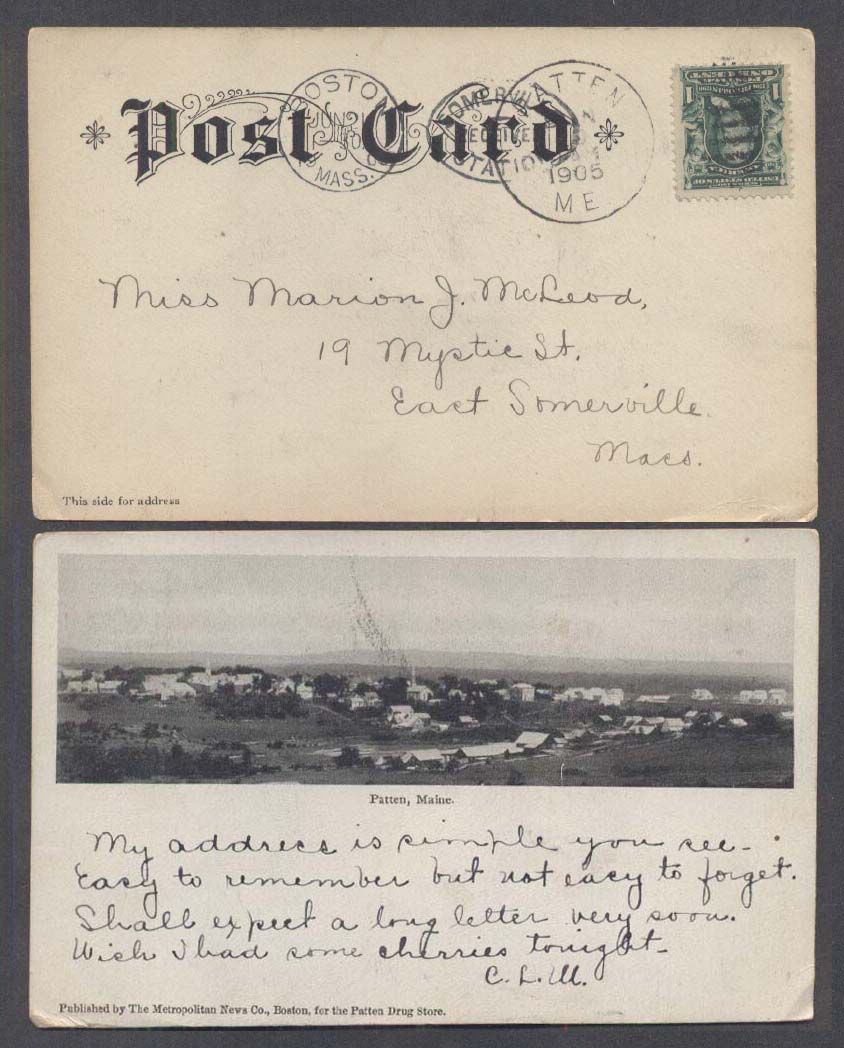 * Post Card *
BOSTON
JUN
MASS.
SOMERVILLE
STATION
PATTEN
1905
ME
Miss Marion J. McLeod,
19 Mystic St.
East Somerville.
Mass.
This side for address
Patten, Maine.
My address is simple you see-
Easy to remember but not easy to forget.
Shall expect a long letter very soon.
Wish I had some cherries tonight-
C. L. W.
Published by The Metropolitan News Co., Boston, for the Patten Drug Store.